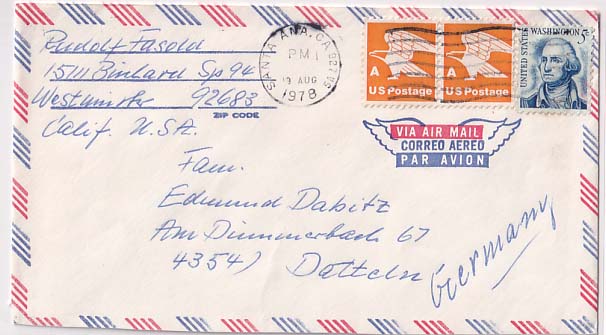 Rudolf Fasold
15111 Bushard Sp 94
Westminster 92683
ZIP CODE
Calif. U.S.A.
SANTA ANA, CA
PM
19 AUG
1978
A
US Postage
A
US Postage
WASHINGTON 5¢
UNITED STATES
VIA AIR MAIL
CORREO AEREO
PAR AVION
Fam.
Edmund Dabitz
Am Dümmerbach 67
4354) Datteln
Germany